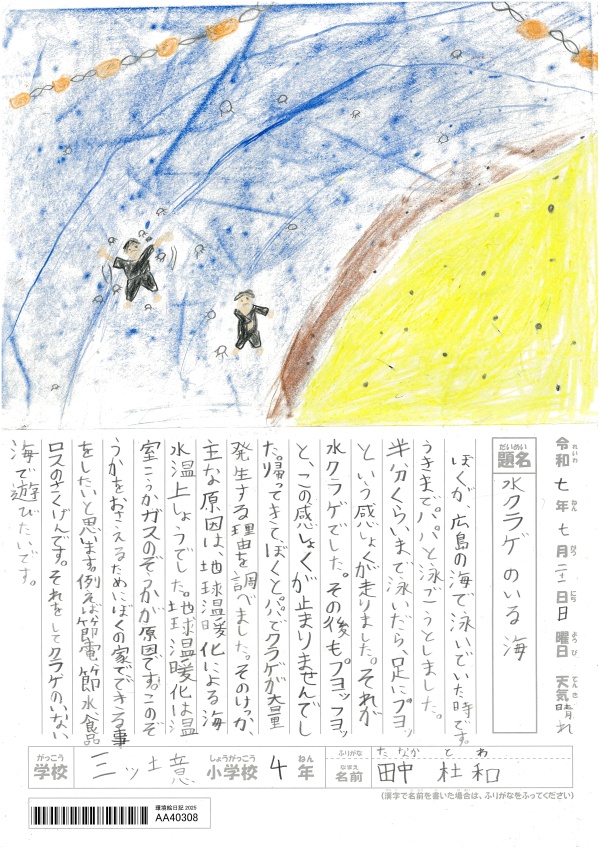 令和七年七月二十日日曜日 天気晴れ
れいわ ねん がつ にち ようび てんき
だいめい
題名 水クラゲのいる海
ぼくが、広島の海で泳いでいた時です。
うきまで、パパと泳ごうとしました。
半分くらいまで泳いだら、足にプヨッ
という感しょくが走りました。それが
水クラゲでした。その後もプヨッフヨッ
と、この感しょくが止まりませんでし
た。帰ってきて、ぼくとパパでクラゲが大量
発生する理由を調べました。そのけっか、
主な原因は、地球温暖化による海
水温上しょうでした。地球温暖化は温
室こうかガスのぞうかが原因です。このぞ
うかをおさえるためにぼくの家でできる事
をしたいと思います。例えば節電節水食品
ロスのさくげんです。それをしてクラゲのいない
海で遊びたいです。
がっこう しょうがっこう ねん ふりがな たなか とわ
学校 三ツ境 小学校 4年 なまえ 名前 田中 杜和
(漢字で名前を書いた場合は、ふりがなをふってください)
環境絵日記 2025
AA40308